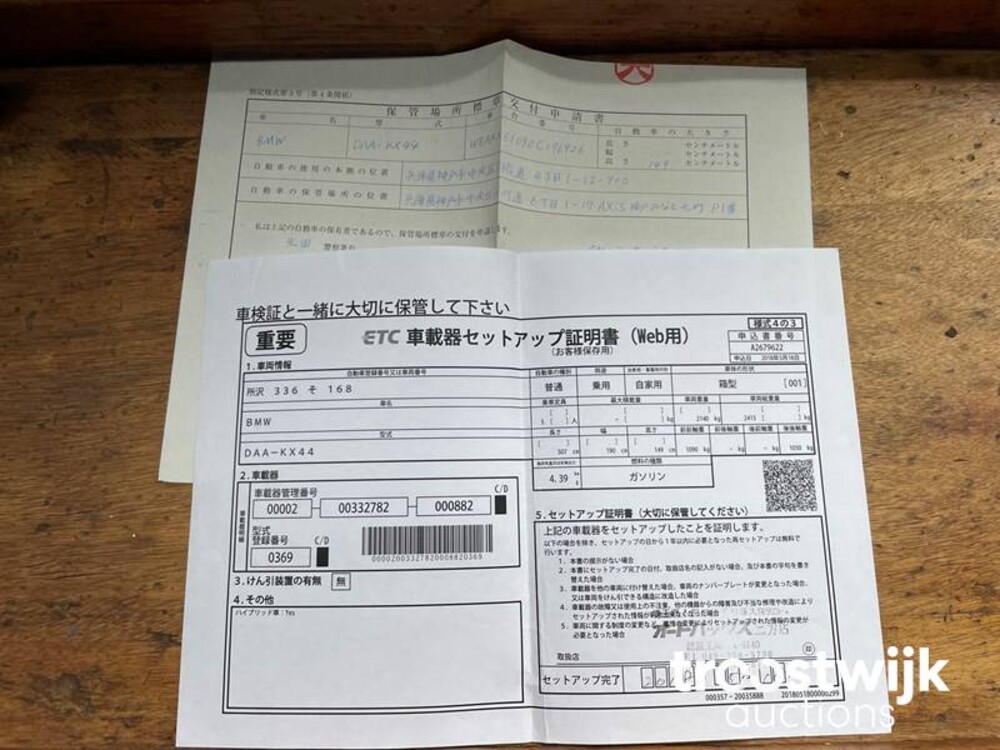 別記様式第3号(第4条関係)
保管場所標章交付申請書
車 名 型 式 車台番号 自動車の大きさ
BMW DAA-KX44
長さ センチメートル
幅 センチメートル
高さ 149 センチメートル
自動車の使用の本拠の位置 兵庫県神戸市中央区 4丁目1-12-
自動車の保管場所の位置 兵庫県神戸市中央区 6丁目1-17 AXIS
私は上記の自動車の保有者であるので、保管場所標章の交付を申請します。
警察署長
車検証と一緒に大切に保管して下さい
重要
ETC 車載器セットアップ証明書(Web用)
(お客様保存用)
様式4の3
申込書番号
A2679622
申込日 2018年5月18日
1.車両情報
自動車登録番号又は車両番号
所沢 336 そ 168
車名
BMW
型式
DAA-KX44
自動車の種別 用途 自家用・事業用の別 車体の形状
普通 乗用 自家用 箱型 [001]
乗車定員 最大積載量 車両重量 車両総重量
5 [ ]人 - [ ] kg 2140 kg 2415 [ ] kg
長さ 幅 高さ 前前軸重 前後軸重 後前軸重 後後軸重
507 cm 190 cm 149 cm 1090 kg - kg - kg 1050 kg
燃料の種類
4.39 ガソリン
2.車載器
車載器管理番号
C/D
00002 - 00332782 - 000882
型式登録番号
C/D
0369
00002003327820008820369
3.けん引装置の有無 無
4.その他
ハイブリッド車:Yes
5.セットアップ証明書(大切に保管してください)
上記の車載器をセットアップしたことを証明します。
以下の場合を除き、セットアップの日から1年以内に必要となった再セットアップは無料で
行います。
1.本書の提示がない場合
2.本書にセットアップ完了の日付、取扱店名の記入がない場合、及び本書の字句を書き
替えた場合
3.車載器を他の車両に付け替えた場合、車両のナンバープレートが変更となった場合、
又は車両をけん引できる構造に改造した場合
4.車載器の故障又は使用上の不注意、他の機器からの障害及び不当な修理や改造により
セットアップされた情報が
5.車両に関する制度の変更など、 の変更によりセットアップされた情報の変更が
必要となった場合
オートバックス三芳店
取扱店
印
セットアップ完了
000357 - 20035888 2018051800000299
troostwijk
auctions